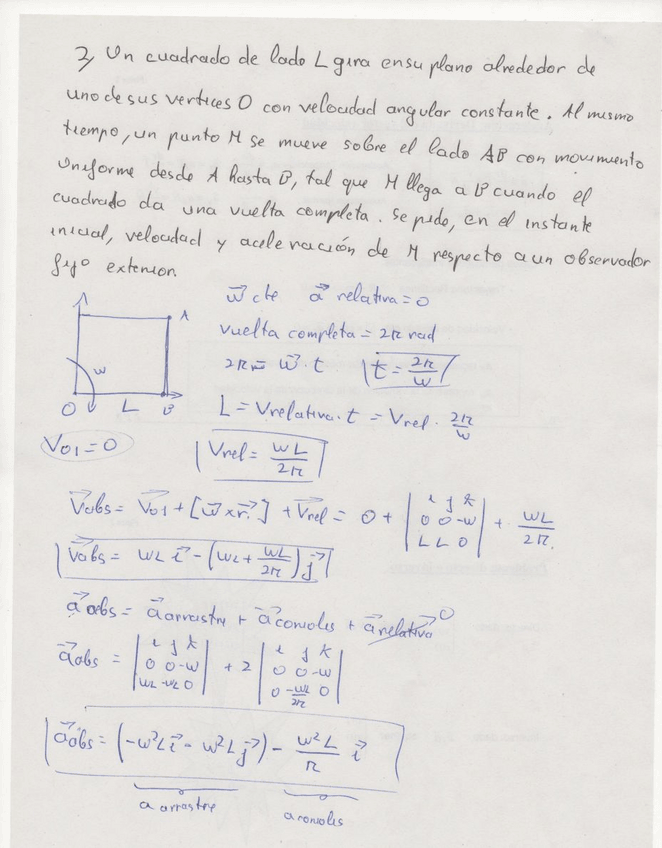 2, Un cuadrado de lado L gira en su plano alrededor de
uno de sus vertices O con velocidad angular constante. Al mismo
tiempo, un punto M se mueve sobre el lado AB con movimiento
Uniforme desde A hasta B, tal que M llega a B cuando el
cuadrado da una vuelta completa. Se pide, en el instante
inicial, velocidad y aceleración de M respecto a un observador
fijo exterior.
w⃗ cte a⃗ relativa = 0
vuelta completa = 2π rad
2π = w⃗ · t t = 2π/w
A
w
O L B
L = Vrelativa · t = Vrel · 2π/w
V01 = 0
Vrel = wL/2π
V⃗abs = V⃗01 + [w⃗ x r⃗] + V⃗rel = 0 + | i j k ; 0 0 -w ; L L 0 | + wL/2π
V⃗abs = wL i⃗ - (wL + wL/2π) j⃗
a⃗abs = a⃗arrastre + a⃗coriolis + a⃗relativa 0
a⃗abs = | i j k ; 0 0 -w ; wL -wL 0 | + 2 | i j k ; 0 0 -w ; 0 -wL/2π 0 |
a⃗abs = (-w²L i⃗ - w²L j⃗) - w²L/π i⃗
a arrastre a coriolis